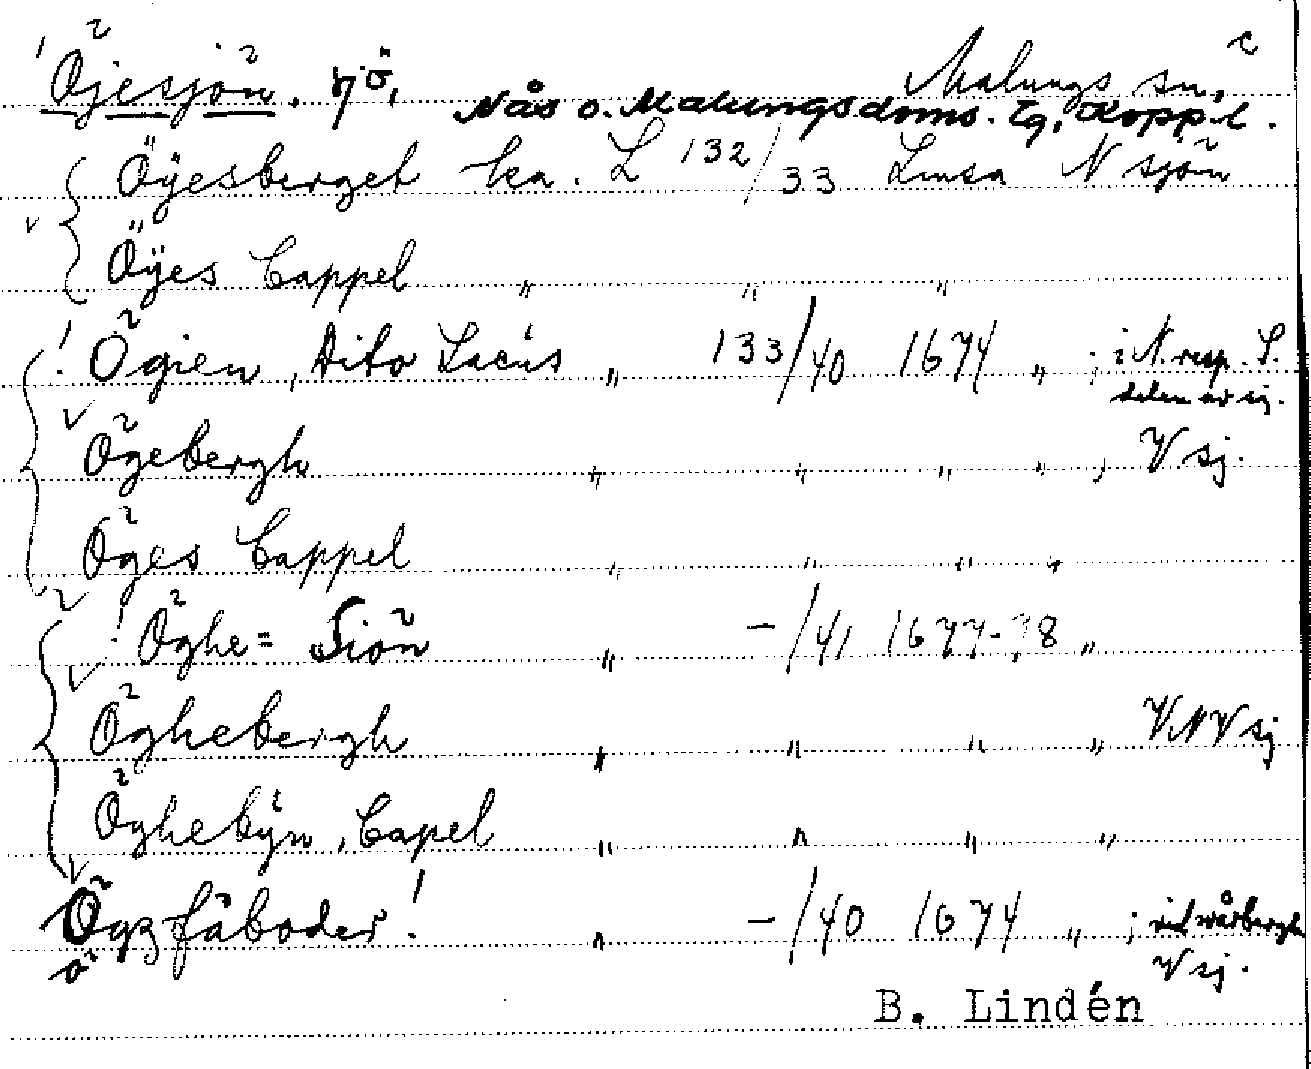 Öjesjön. sjö, Malungs sn,
Nås o. Malungs doms. tg, Kopp. l.
Öÿesberget ka. L 132/33 Linsa N sjön
Öÿes Cappel " " "
! Ögien, dito Lacus " 133/40 1674 " ; i N. resp. S. delen av sj.
Ögebergh " " " " , V sj.
Öges Cappel " " " "
! Öghe= Siön " -/41 1677-78 "
Öghebergh " " " " VNV sj
Öghebÿn, Capel " " " "
Ögz fäboder! " -/40 1674 " ; vid wårbergh V sj.
B. Lindén